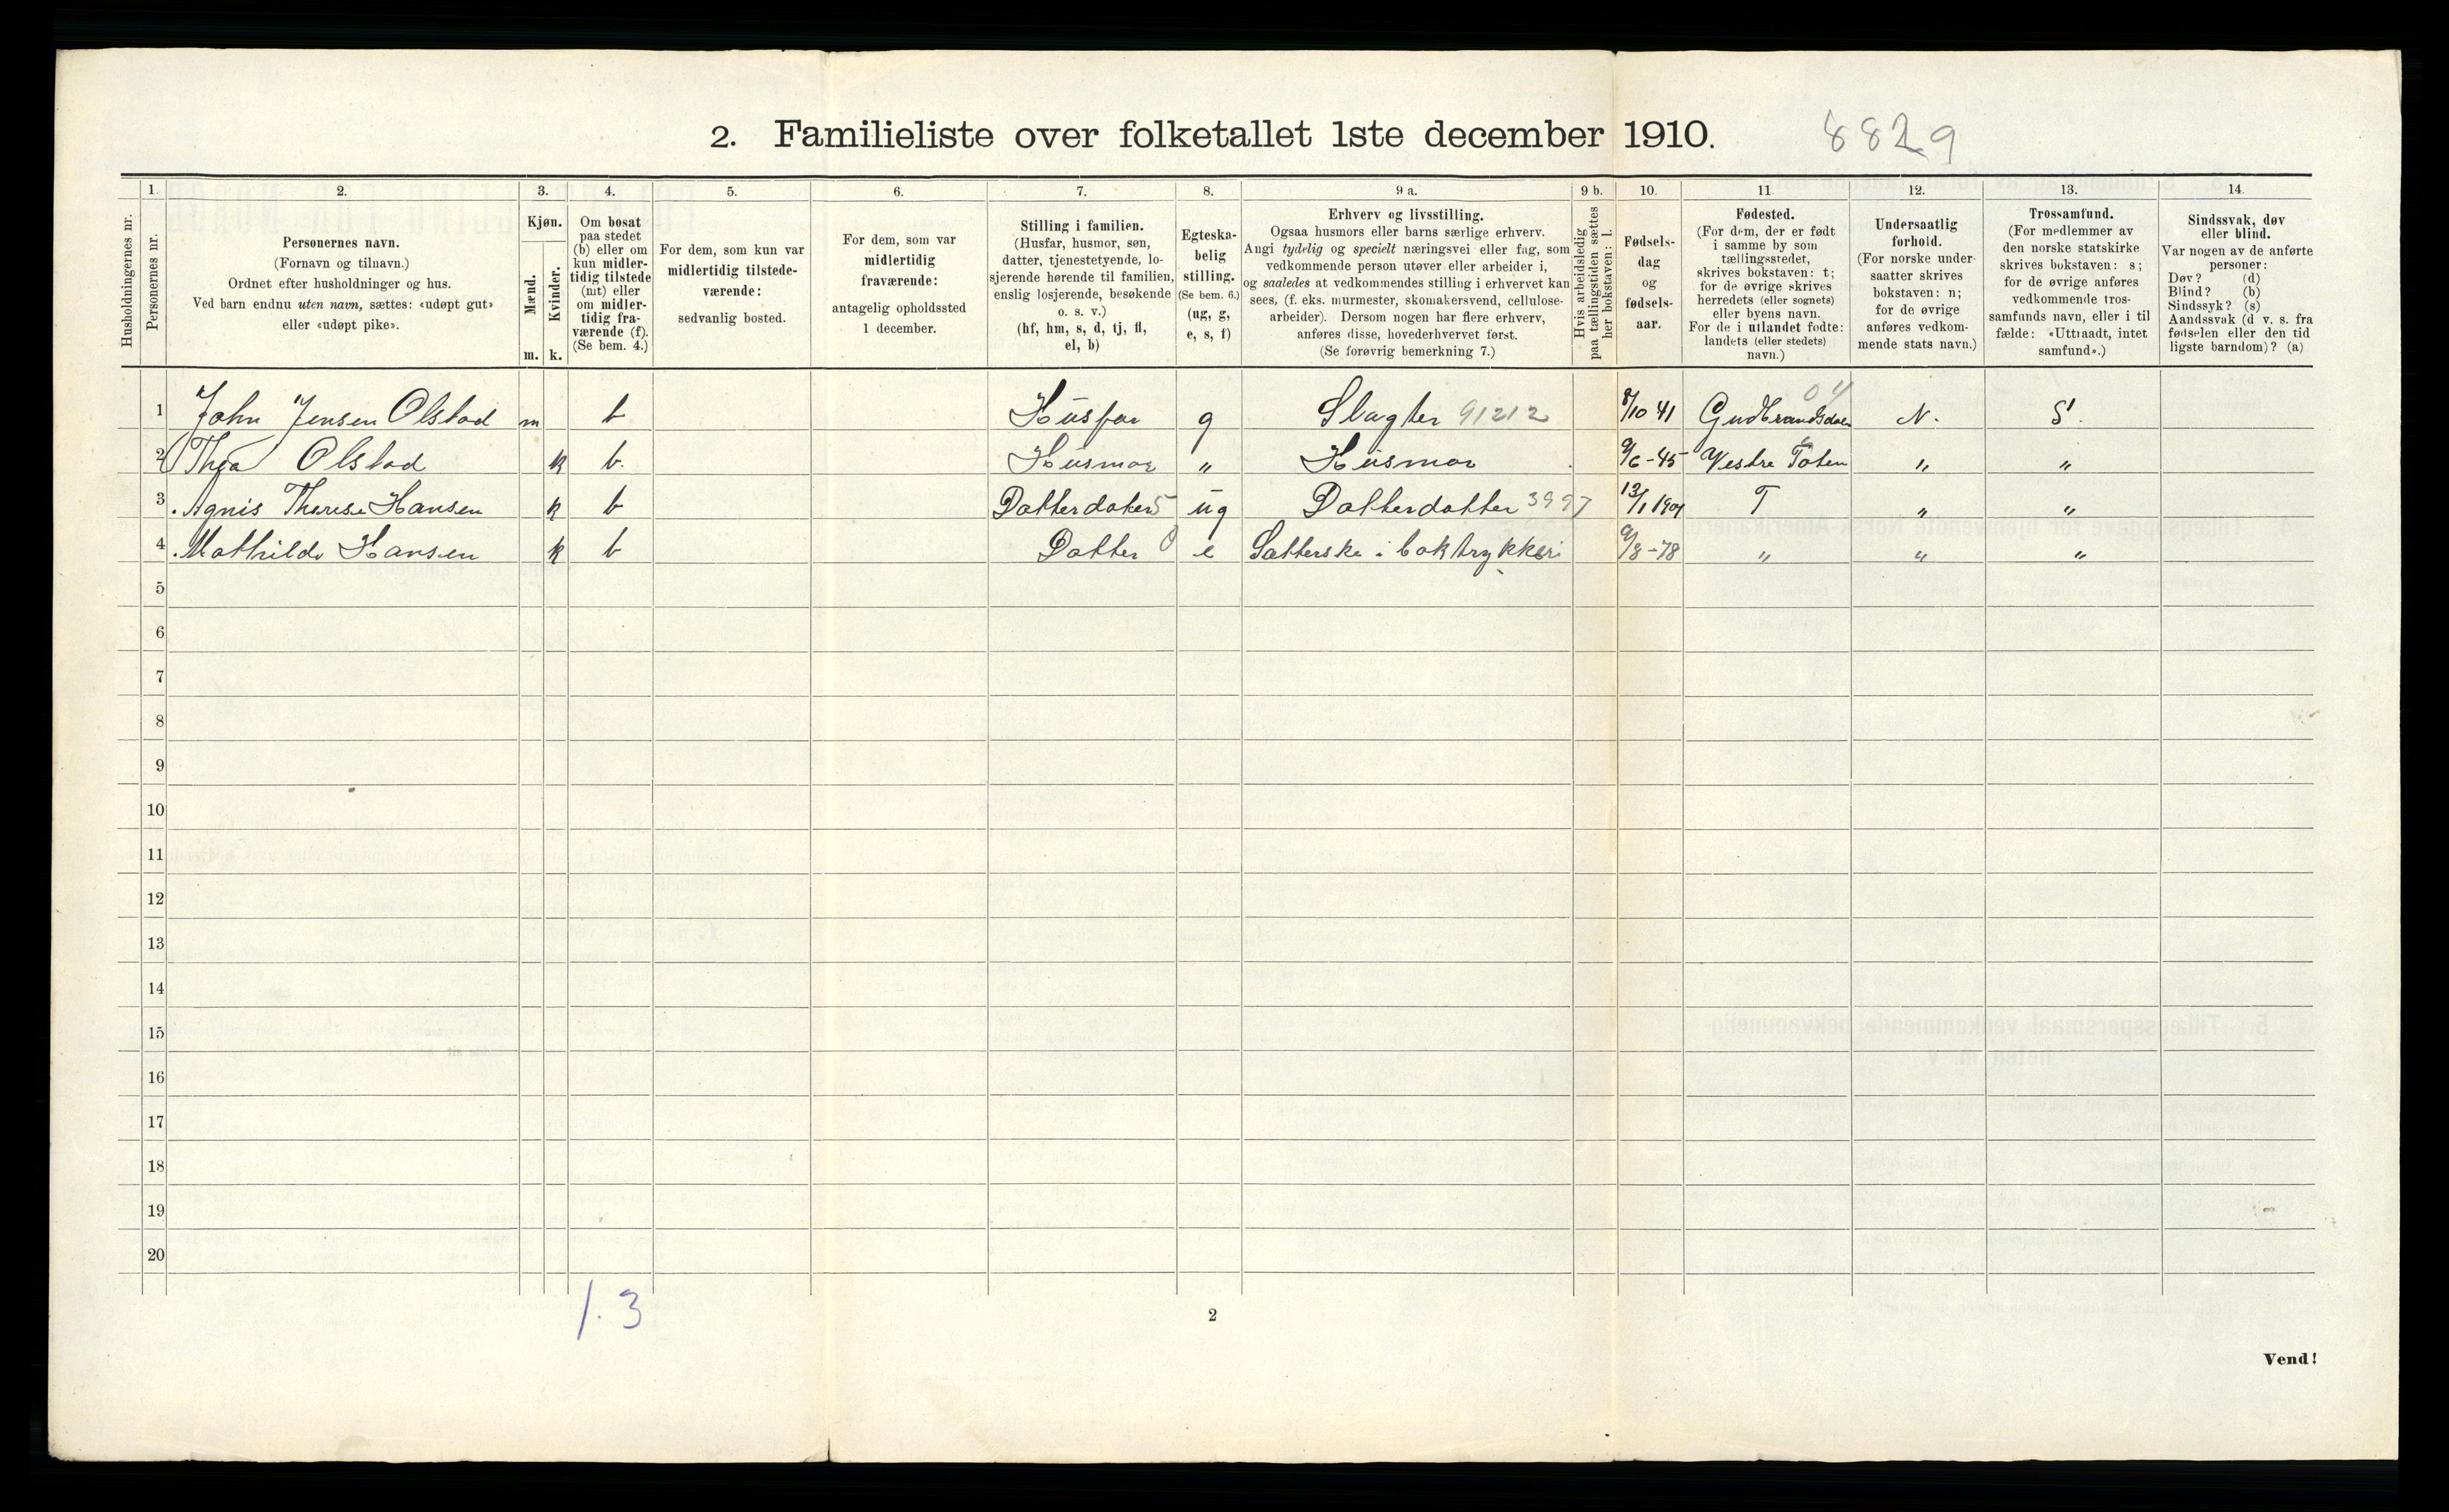 2. Familieliste over folketallet 1ste december 1910. 8829
Husholdningernes nr.
1. Personernes nr.
2. Personernes navn. (Fornavn og tilnavn.) Ordnet efter husholdninger og hus. Ved barn endnu uten navn, sættes: «udøpt gut» eller «udøpt pike».
3. Kjøn. Mænd. m. Kvinder. k.
4. Om bosat paa stedet (b) eller om kun midlertidig tilstede (mt) eller om midlertidig fraværende (f). (Se bem. 4.)
5. For dem, som kun var midlertidig tilstedeværende: sedvanlig bosted.
6. For dem, som var midlertidig fraværende: antagelig opholdssted 1 december.
7. Stilling i familien. (Husfar, husmor, søn, datter, tjenestetyende, losjerende hørende til familien, enslig losjerende, besøkende o. s. v.) (hf, hm, s, d, tj, fl, el, b)
8. Egteskabelig stilling. (Se bem. 6.) (ug, g, e, s, f)
9 a. Erhverv og livsstilling. Ogsaa husmors eller barns særlige erhverv. Angi tydelig og specielt næringsvei eller fag, som vedkommende person utøver eller arbeider i, og saaledes at vedkommendes stilling i erhvervet kan sees, (f. eks. murmester, skomakersvend, cellulosearbeider). Dersom nogen har flere erhverv, anføres disse, hovederhvervet først. (Se forøvrig bemerkning 7.)
9 b. Hvis arbeidsledig paa tællingstiden sættes her bokstaven: l.
10. Fødselsdag og fødselsaar.
11. Fødested. (For dem, der er født i samme by som tællingsstedet, skrives bokstaven: t; for de øvrige skrives herredets (eller sognets) eller byens navn. For de i utlandet fødte: landets (eller stedets) navn.)
12. Undersaatlig forhold. (For norske undersaatter skrives bokstaven: n; for de øvrige anføres vedkommende stats navn.)
13. Trossamfund. (For medlemmer av den norske statskirke skrives bokstaven: s; for de øvrige anføres vedkommende trossamfunds navn, eller i tilfælde: «Uttraadt, intet samfund».)
14. Sindssvak, døv eller blind. Var nogen av de anførte personer: Døv? (d) Blind? (b) Sindssyk? (s) Aandssvak (d. v. s. fra fødselen eller den tidligste barndom)? (a)
1 John Jensen Olstad m b Husfar g Slagter 91212 8/10 41 Gudbrandsdalen 04 N. S.
2 Thea Olstad k b. Husmor " Husmor 9/6-45 Vestre Toten " "
3 Agnis Therese Hansen k b Datterdatter 5 ug Datterdatter 3997 13/1 1901 T " "
4 Mathilde Hansen k b Datter 0 e Sætterske i boktrykkeri 9/8-78 " " "
5
6
7
8
9
10
11
12
13
14
15
16
17
18
19
20
1. 3
2
Vend!